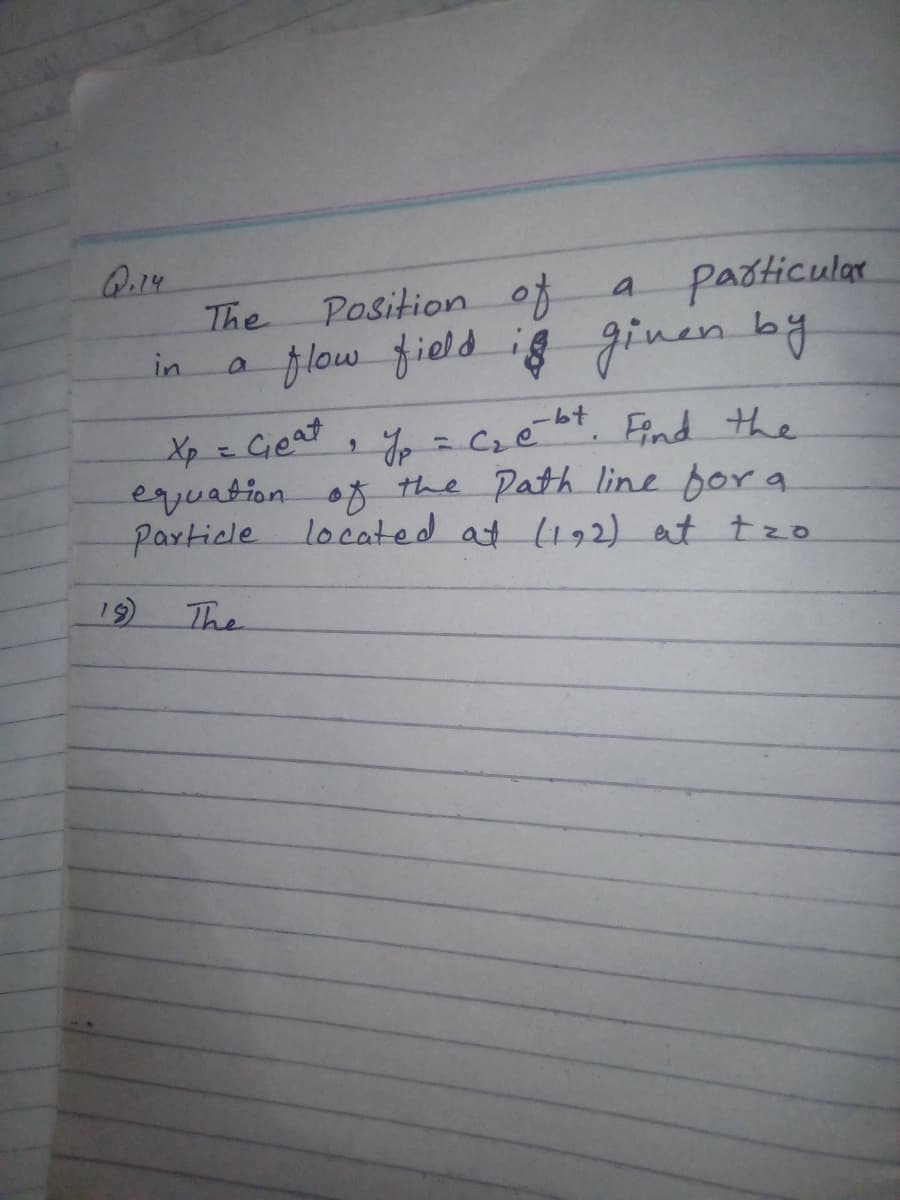 Q.14
The Position of a particular
in a flow field is given by
Xp = C₁eᵃᵗ , yp = C₂e⁻ᵇᵗ. Find the
equation of the Path line for a
Particle located at (1,2) at t=0
18) The